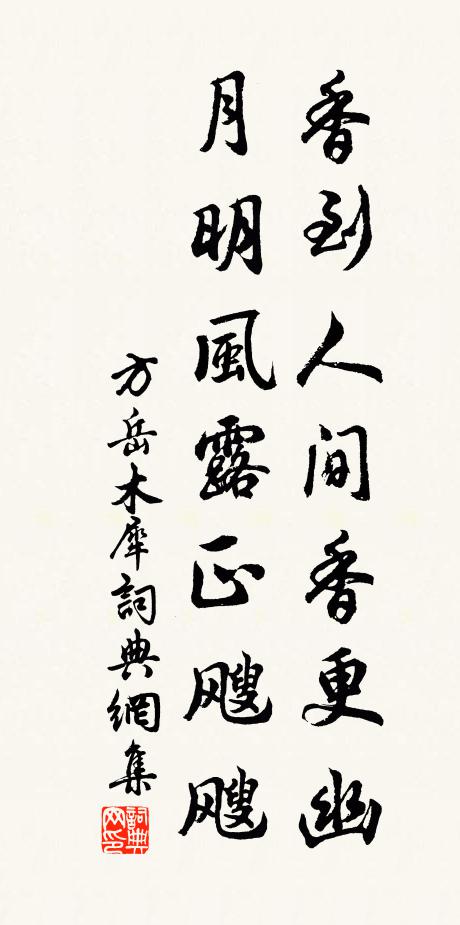 香到人間香更幽
月明風露正颼颼
方岳木犀詞典網集
詞典
网印